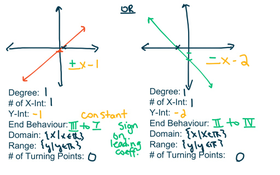 OR
+x-1
-x-2
Degree: 1
# of X-Int: 1
Y-Int: -1
constant
End Behaviour: III to I
Domain: {x|x∈ℝ}
Range: {y|y∈ℝ}
# of Turning Points: 0
sign
on
leading
coeff.
Degree: 1
# of X-Int: 1
Y-Int: -2
End Behaviour: II to IV
Domain: {x|x∈ℝ}
Range: {y|y∈ℝ}
# of Turning Points: 0